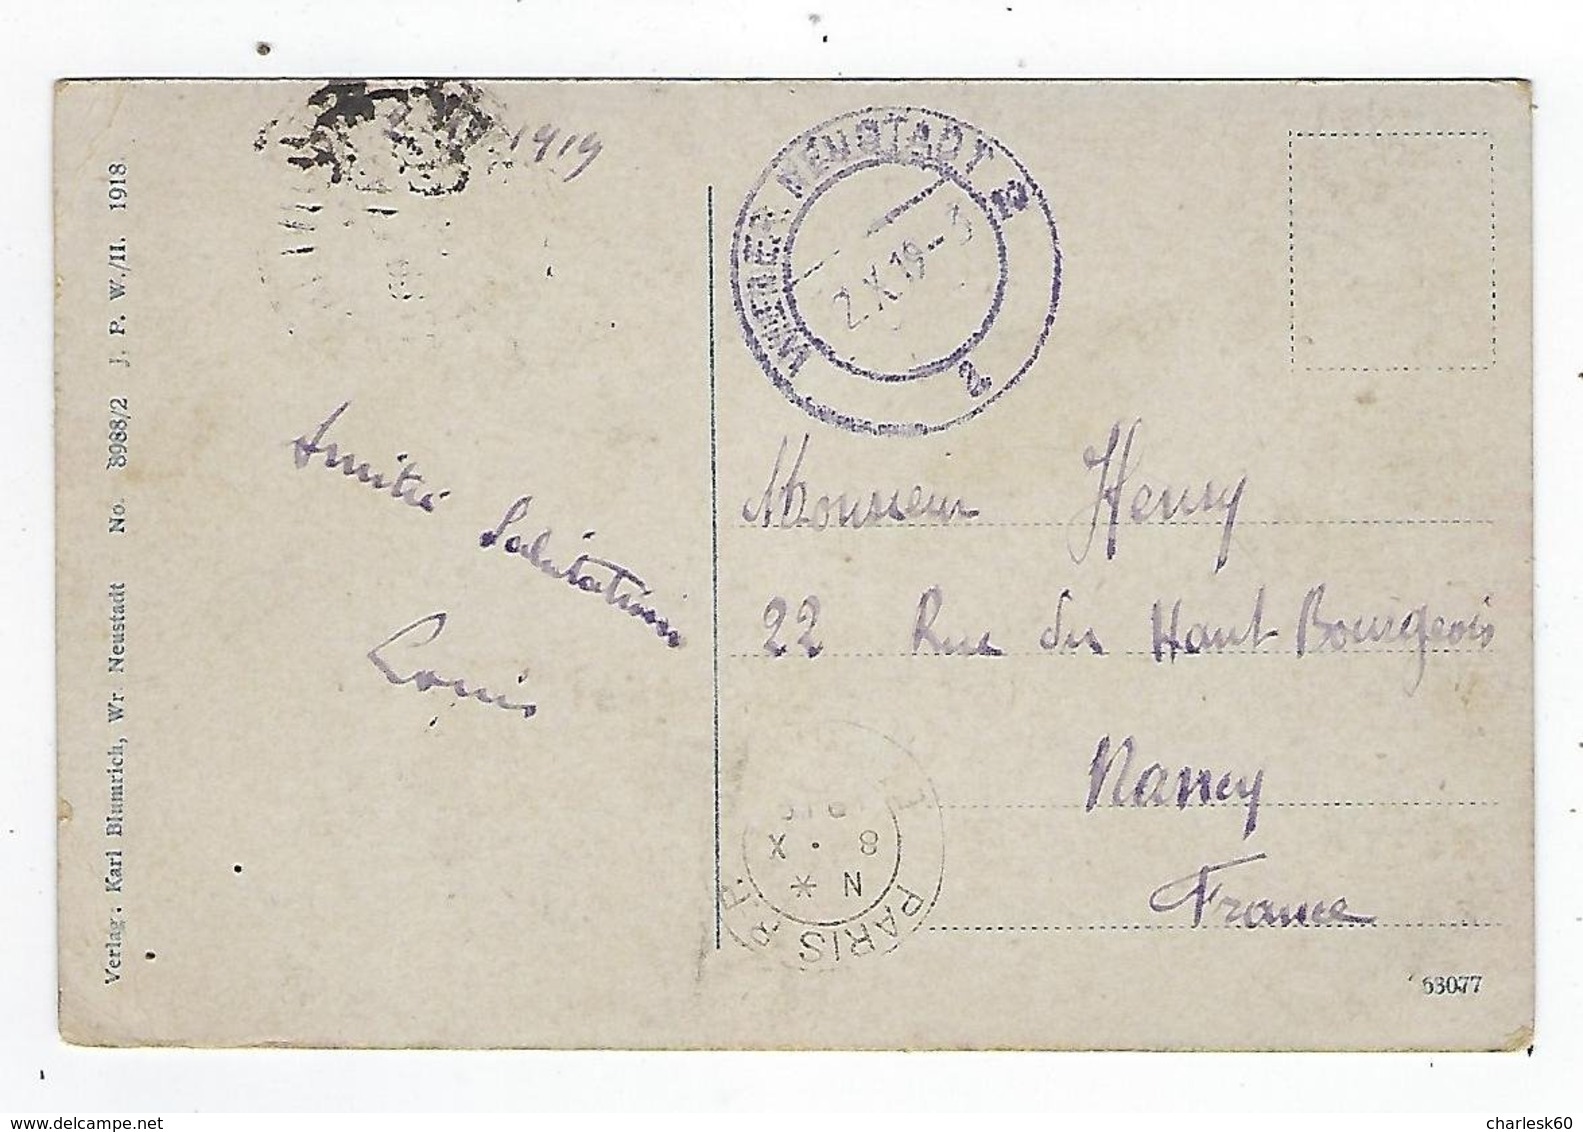 1919
WIENER NEUSTADT 2
2.X.19-3
2
Amitié Salutations
Louis
Monsieur Henry
22 Rue du Haut Bourgeois
Nancy
France
PARIS R.P.
8 . X
N *
Verlag: Karl Blumrich, Wr. Neustadt No. 8988/2 J. P. W./II. 1918
63077
charlesk60